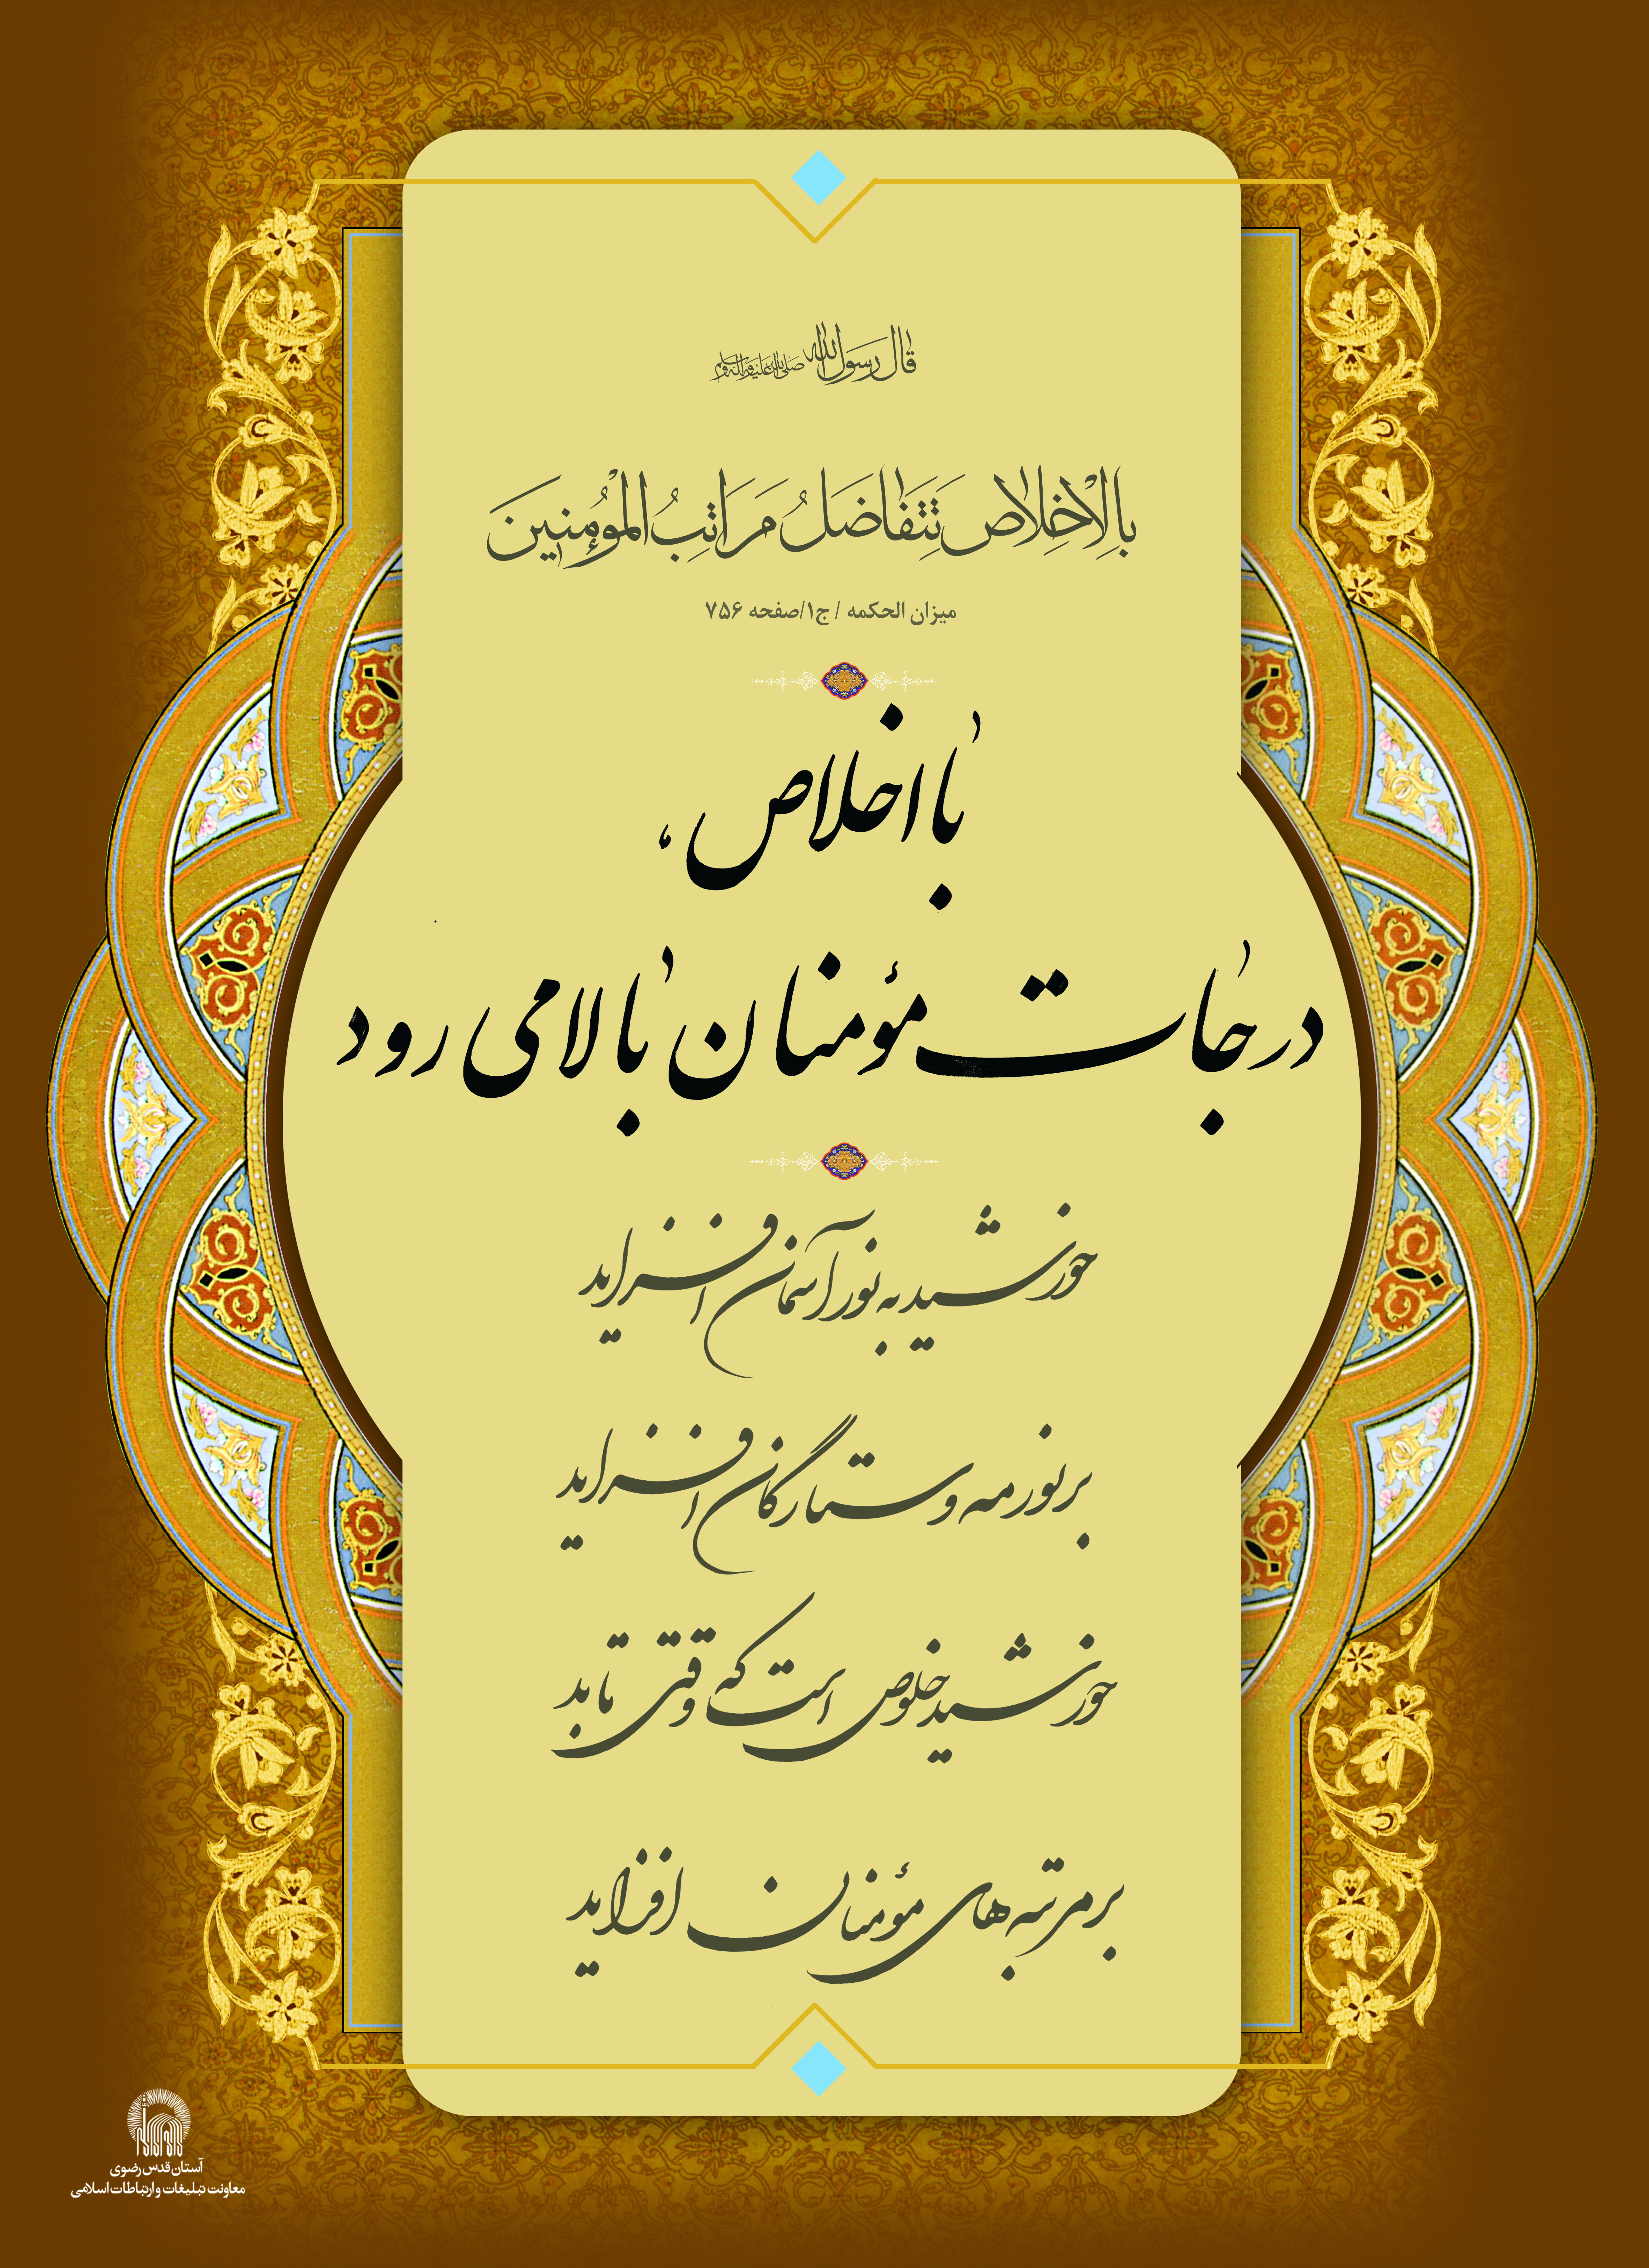 قال رسول الله صلی الله علیه و آله و سلم
بِالْاِخْلاصِ تَتَفاضَلُ مَراتِبُ الْمُؤْمِنینَ
میزان الحکمه / ج۱/صفحه ۷۵۶
با اخلاص،
درجات مؤمنان بالا می رود
خورشید به نور آسمان افزاید
بر نور مه و ستارگان افزاید
خورشید خلوص است که وقتی تابد
بر مرتبه های مؤمنان افزاید
آستان قدس رضوی
معاونت تبلیغات و ارتباطات اسلامی